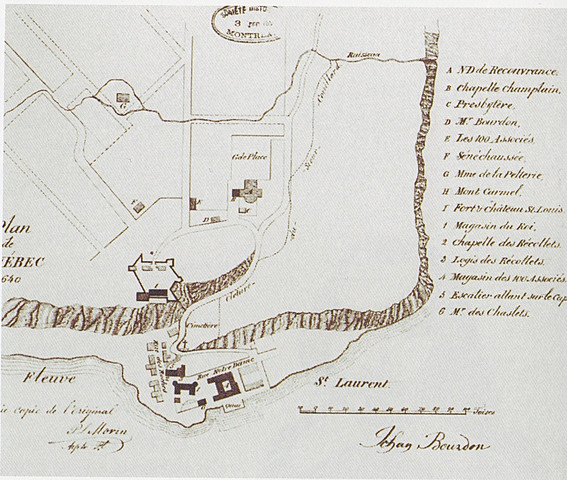 MONTREAL
Ruisseau
Couillard
Sieur
du
Cloture
Gde Place
G
F
E
D
Cimetière
Rue Notre Dame
Plan
de
QUÉBEC
1640
Fleuve
St. Laurent
copie de l'original
P.L. Morin
Toises
Jehan Bourdon
A ND de Recouvrance.
B Chapelle Champlain.
C Presbytère.
D Mr. Bourdon.
E Les 100 Associés.
F Sénéchaussée.
G Mme de la Peltrie.
H Mont Carmel.
I Fort & Château St. Louis.
1 Magasin du Roi.
2 Chapelle des Récollets.
3 Logis des Récollets.
4 Magasin des 100 Associés.
5 Escalier allant sur le Cap
6 Mr. des Chaslets.